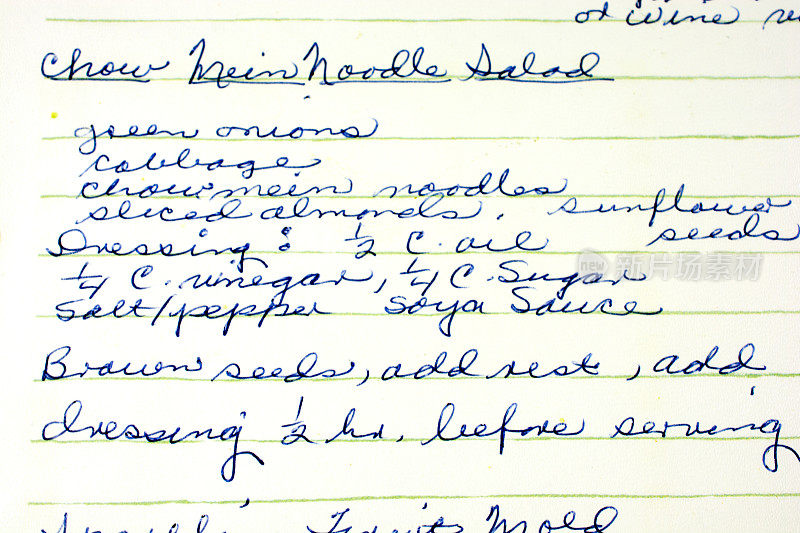 or wine
Chow Mein Noodle Salad
green onions
cabbage
chow mein noodles
sliced almonds, sunflower seeds
Dressing : 1/2 C. oil
1/4 C. vinegar, 1/4 C. Sugar
Salt/pepper Soya Sauce
Brown seeds, add rest, add
dressing 1/2 hr. before serving
Fruit Mold
新片场素材